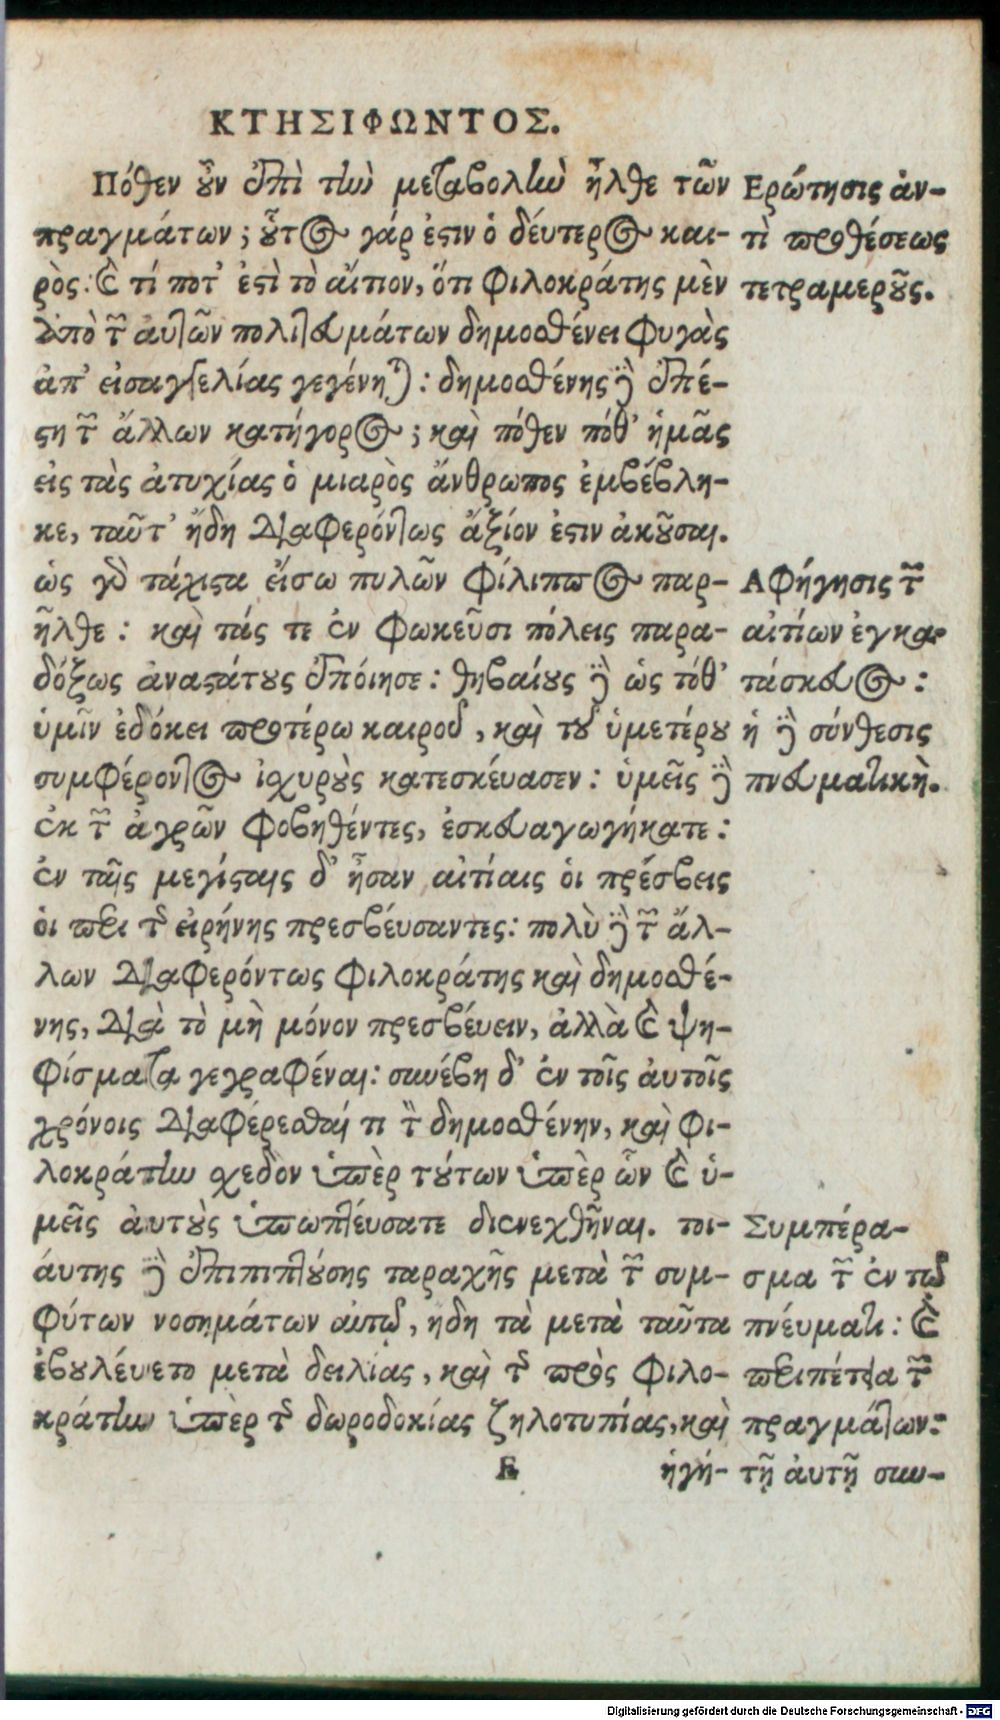 ΚΤΗΣΙΦΩΝΤΟΣ.
Πόθεν οὖν ἐπὶ τὴν μεταβολὴν ἦλθε τῶν
πραγμάτων; οὗτος γάρ ἐστιν ὁ δεύτερος και-
ρὸς: καὶ τί ποτ' ἐστὶ τὸ αἴτιον, ὅτι Φιλοκράτης μὲν
ἀπὸ τῶν αὐτῶν πολιτευμάτων δημοσθένει φυγὰς
ἀπ' εἰσαγγελίας γεγένηται: δημοσθένης δὲ ἐπέ-
στη τῶν ἄλλων κατήγορος; καὶ πόθεν πόθ' ἡμᾶς
εἰς τὰς ἀτυχίας ὁ μιαρὸς ἄνθρωπος ἐμβέβλη-
κε, ταῦτ' ἤδη διαφερόντως ἄξιόν ἐστιν ἀκοῦσαι.
ὡς γὰρ τάχιστα εἴσω πυλῶν Φίλιππος παρ-
ῆλθε: καὶ τάς τε ἐν Φωκεῦσι πόλεις παρα-
δόξως ἀναστάτους ἐποίησε: θηβαίους δὲ ὡς τόθ'
ὑμῖν ἐδόκει προτέρω καιροῦ, καὶ τοῦ ὑμετέρου
συμφέροντος ἰσχυροὺς κατεσκεύασεν: ὑμεῖς δὲ
ἐκ τῶν ἀγρῶν φοβηθέντες, ἐσκευαγωγήκατε:
ἐν ταῖς μεγίσταις δ' ἦσαν αἰτίαις οἱ πρέσβεις
οἱ περὶ τῆς εἰρήνης πρεσβεύσαντες: πολὺ δὲ τῶν ἄλ-
λων διαφερόντως Φιλοκράτης καὶ δημοσθέ-
νης, διὰ τὸ μὴ μόνον πρεσβεύειν, ἀλλὰ καὶ ψη-
φίσματα γεγραφέναι: συνέβη δ' ἐν τοῖς αὐτοῖς
χρόνοις διαφέρεσθαί τι τὸν δημοσθένην, καὶ Φι-
λοκράτην σχεδὸν ὑπὲρ τούτων ὑπὲρ ὧν καὶ ὑ-
μεῖς αὐτοὺς ὑπωπτεύσατε διενεχθῆναι. τοι-
αύτης δὲ ἐπιπιπτούσης ταραχῆς μετὰ τῶν συμ-
φύτων νοσημάτων αὐτῷ, ἤδη τὰ μετὰ ταῦτα
ἐβουλεύετο μετὰ δειλίας, καὶ τῆς πρὸς Φιλο-
κράτην ὑπὲρ τῆς δωροδοκίας ζηλοτυπίας, καὶ
E ἡγή-
Ερώτησις ἀν-
τὶ προθέσεως
τετραμεροῦς.
Αφήγησις τῶν
αἰτίων ἐγκα-
τάσκευος:
ἡ δὲ σύνθεσις
πνευματικὴ.
Συμπέρα-
σμα τῶν ἐν τῷ
πνεύματι: καὶ
περιπέτεια τῶν
πραγμάτων:
τῇ αὐτῇ συν-
Digitalisierung gefördert durch die Deutsche Forschungsgemeinschaft - DFG